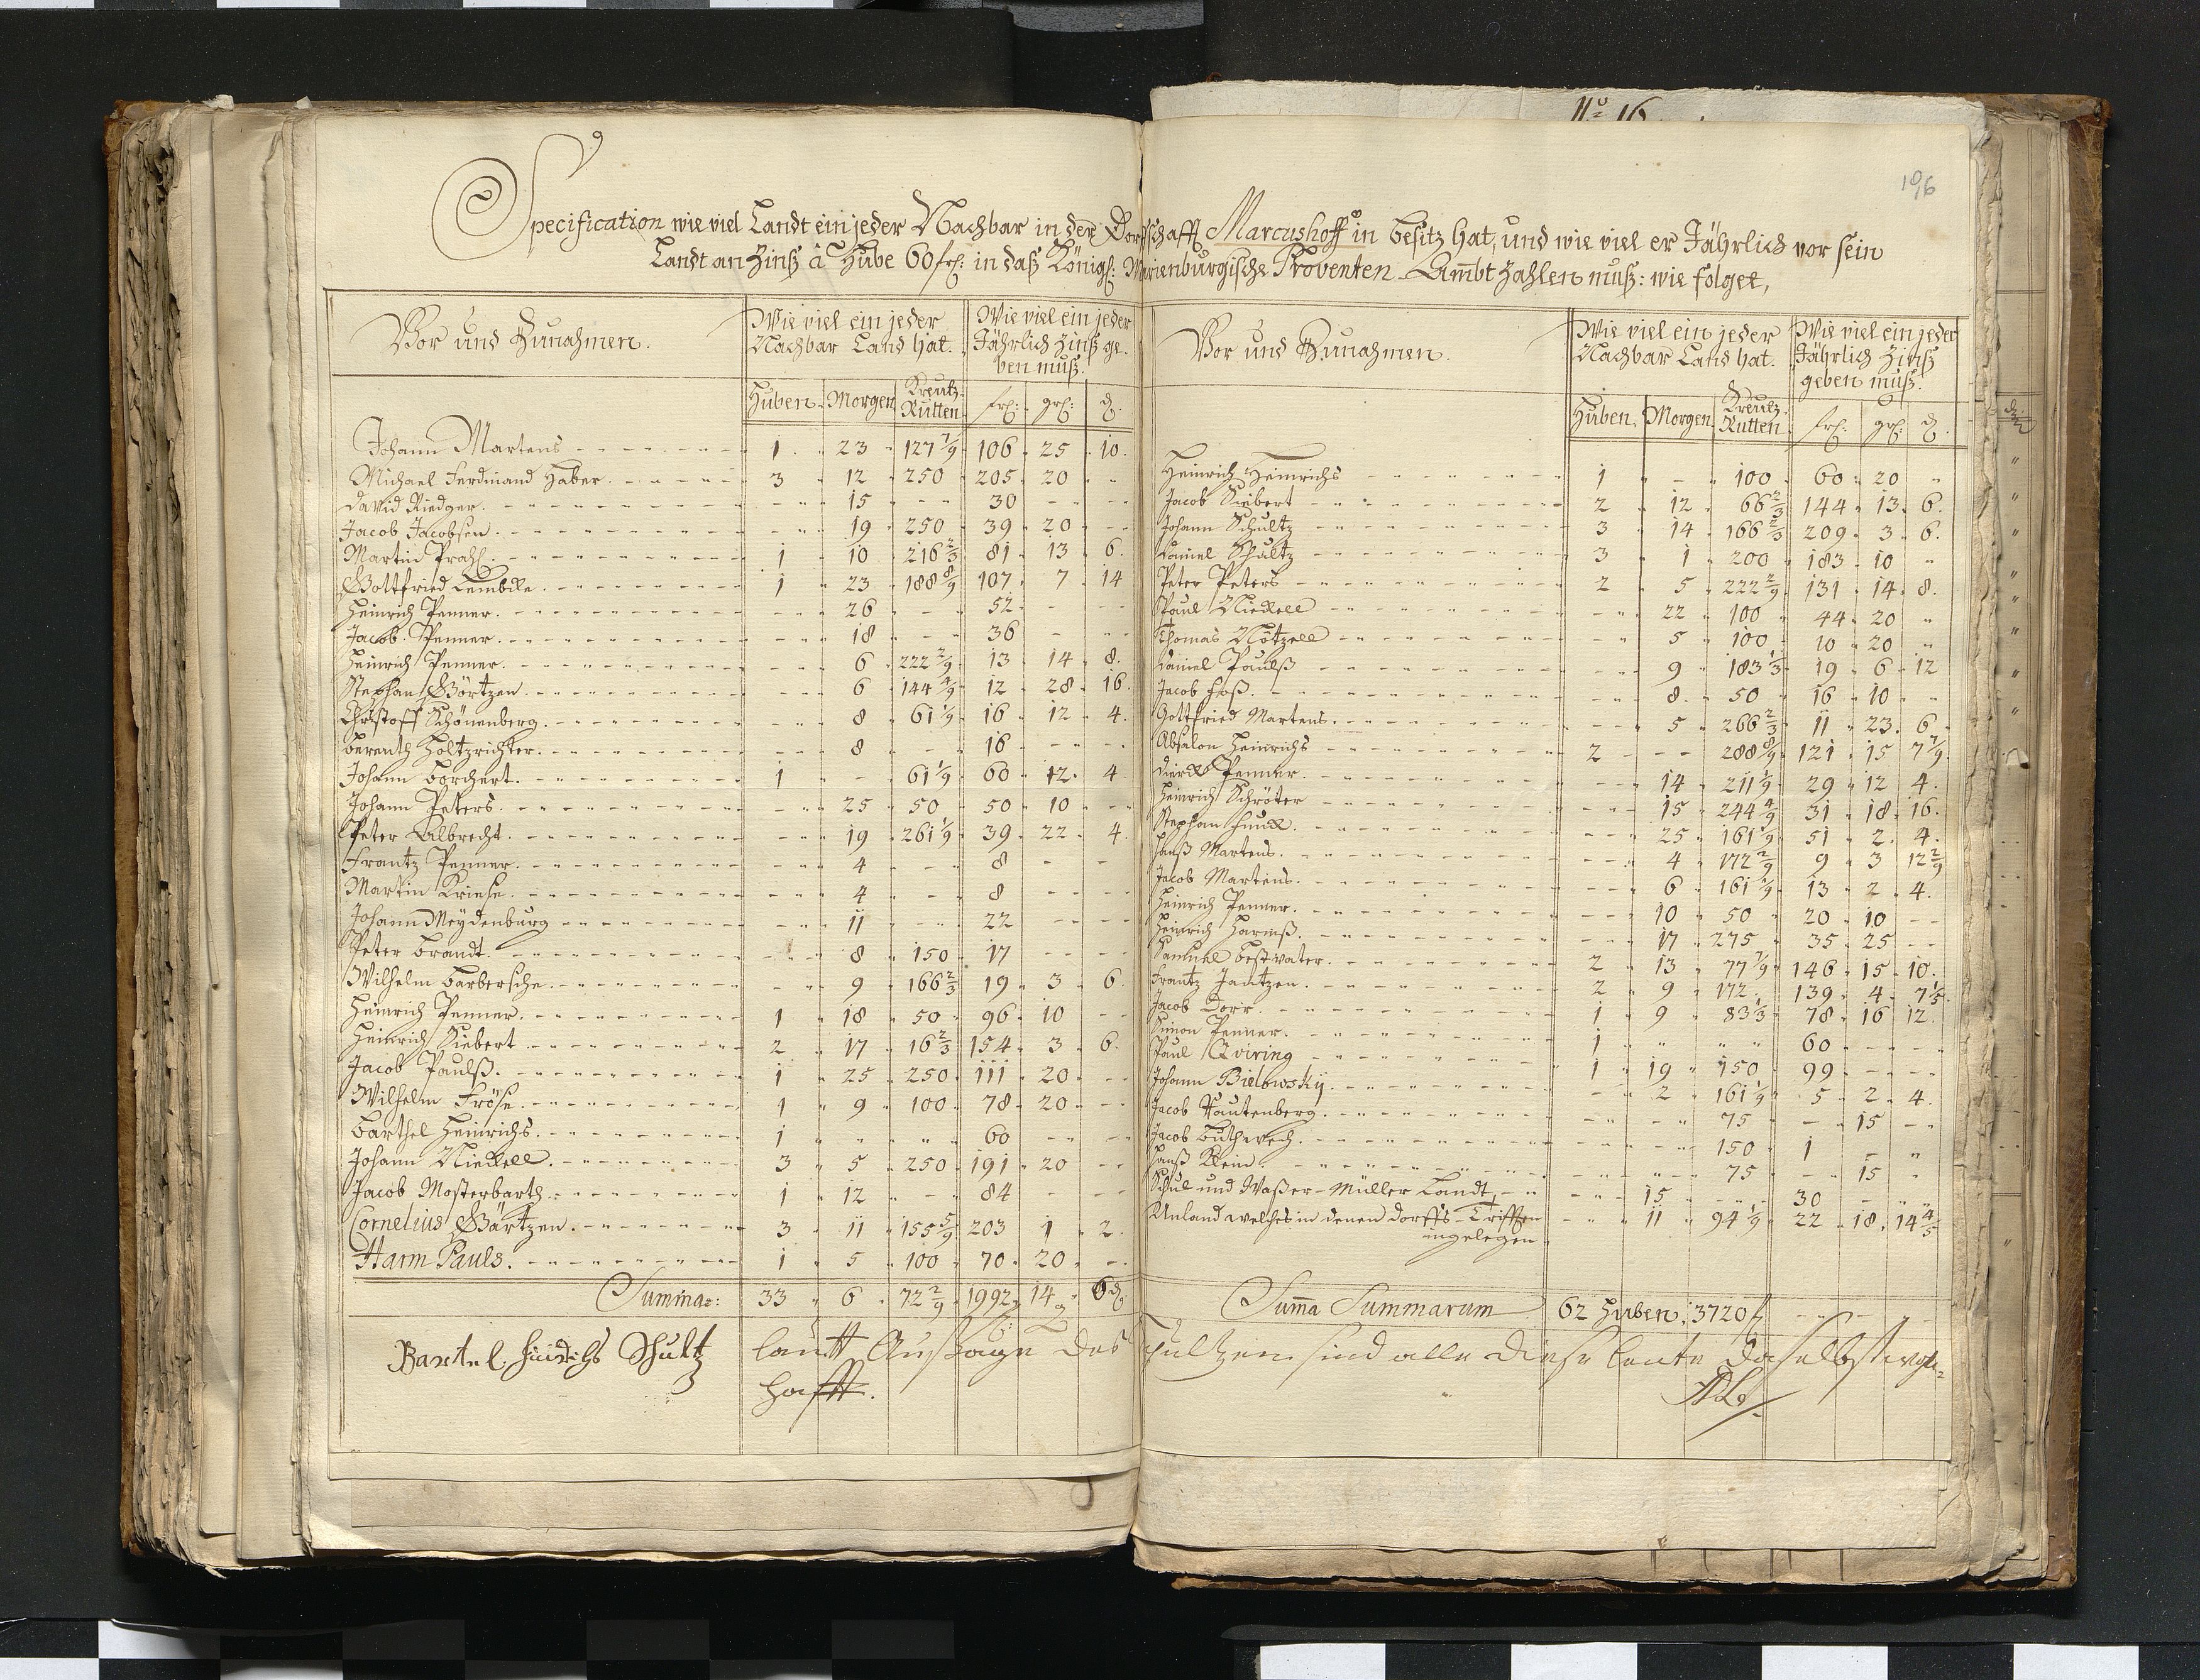 No 16
106
Specification wie viel Landt ein jeder Nachbar in der Dorfschafft Marcushoff in besitz hat, und wie viel er Jährlich vor sein
Landt an Zinß â Hube 60 frl: in daß Königl: Marienburgische Proventen-Ambt zahlen muß: wie folget,
Vor und Zunahmen. Wie viel ein jeder Nachbar Land hat. Wie viel ein jeder Jährlich Zinß geben muß.
Huben. Morgen Kreutz-Rutten frl: grl: d.
Johann Martens 1 23 127 7/9 106 25 10.
Michael Ferdinand Haber. 3 12 250 205 20
David Riedger. 15 30
Jacob Jacobsen. 19 250 39 20
Martin Prahl. 1 10 216 2/3 81 13 6.
Gottfried Lembke. 1 23 188 8/9 107 7 14
Heinrich Penner. 26 52
Jacob Penner. 18 36
Heinrich Penner. 6 222 2/9 13 14 8.
Stephan Görtzen. 6 144 4/9 12 28 16.
Christoff Schönenberg. 8 61 1/9 16 12 4.
Berenth Holtzrichter. 8 16
Johann Borchert. 1 61 1/9 60 12 4
Johann Peters. 25 50 50 10
Peter Albrecht. 19 261 1/9 39 22 4.
Frantz Penner. 4 8
Martin Kriese. 4 8
Johann Meydenburg 11 22
Peter Brandt. 8 150 17
Wilhelm Barbersche. 9 166 2/3 19 3 6.
Heinrich Penner. 1 18 50 96 10
Heinrich Siebert 2 17 16 2/3 154 3 6.
Jacob Paulß. 1 25 250 111 20
Wilhelm Fröse. 1 9 100 78 20
Barthel Heinrichs. 1 60
Johann Nickell. 3 5 250 191 20
Jacob Mosterbarth. 1 12 84
Cornelius Gärtzen. 3 11 155 5/9 203 1 2.
Harm Pauls. 1 5 100 70 20
Summa: 33 6 72 2/9 1992 14 6 d
Bartel Hindrichs Schultz
Vor und Zunahmen. Wie viel ein jeder Nachbar Land hat. Wie viel ein jeder Jährlich Zinß geben muß.
Huben. Morgen Kreutz-Rutten frl: grl: d.
Heinrich Heinrichs 1 100 60 20
Jacob Siebert 2 12 66 2/3 144 13 6.
Johann Schultz 3 14 166 2/3 209 3 6.
Daniel Schultz 3 1 200 183 10
Peter Peters 2 5 222 2/9 131 14 8.
Paul Nickell 22 100 44 20
Thomas Nötzell 5 100 10 20
Daniel Paulß 9 183 1/3 19 6 12
Jacob Foß. 8 50 16 10
Gottfried Martens. 5 266 2/3 11 23 6
Absalon Heinrichs 2 288 8/9 121 15 7 7/9
Dirck Penner. 14 211 1/9 29 12 4.
Heinrich Schröter 15 244 4/9 31 18 16.
Stephan Funck. 25 161 1/9 51 2 4.
Hanß Martens. 4 172 2/9 9 3 12 2/9
Jacob Martens. 6 161 1/9 13 2 4.
Heinrich Penner. 10 50 20 10
Heinrich Harmß. 17 275 35 25
Samuel Bestvater. 2 13 77 7/9 146 15 10.
Frantz Jantzen. 2 9 172 139 4 7 1/5
Jacob Dorr. 1 9 83 1/3 78 16 12.
Simon Penner. 1 60
Paul Qviring 1 19 150 99
Johann Bielowsky. 2 161 1/9 5 2 4.
Jacob Rautenberg. 75 15
Jacob 150 1
Hanß Klein. 75 15
Schul und Waßer-Müller Landt, 15 30
Unland welches in denen dorffs-Trifften 11 94 1/9 22 18 14 4/5
ingelegen.
Summa Summarum 62 Huben, 3720 f
lautt Aussage des Schultzen sind alle diese leute daselbst
hafft.